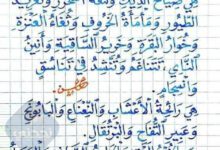 هِيَ صِيَاحُ الدِّيكِ وَنَغْمَةُ الشُّحْرُورِ وَتَغْرِيدُ
الطُّيُورِ وَمَأْمَأَةُ الْخَرُوفِ وَثُغَاءُ الْعَنْزَةِ
وَخُوَارُ الْبَقَرَةِ وَخَرِيرُ السَّاقِيَةِ وَأَنِينُ
النَّايِ، تَتَنَاغَمُ وَتَنْتَشِرُ فِي تَنَاسُقٍ
وَانْسِجَامٍ.
هِيَ رَائِحَةُ الْأَعْشَابِ وَالنَّعْنَاعِ وَالْبَابُونَجِ
وَعَبِيرُ التُّفَّاحِ وَالْبُرْتُقَالِ.